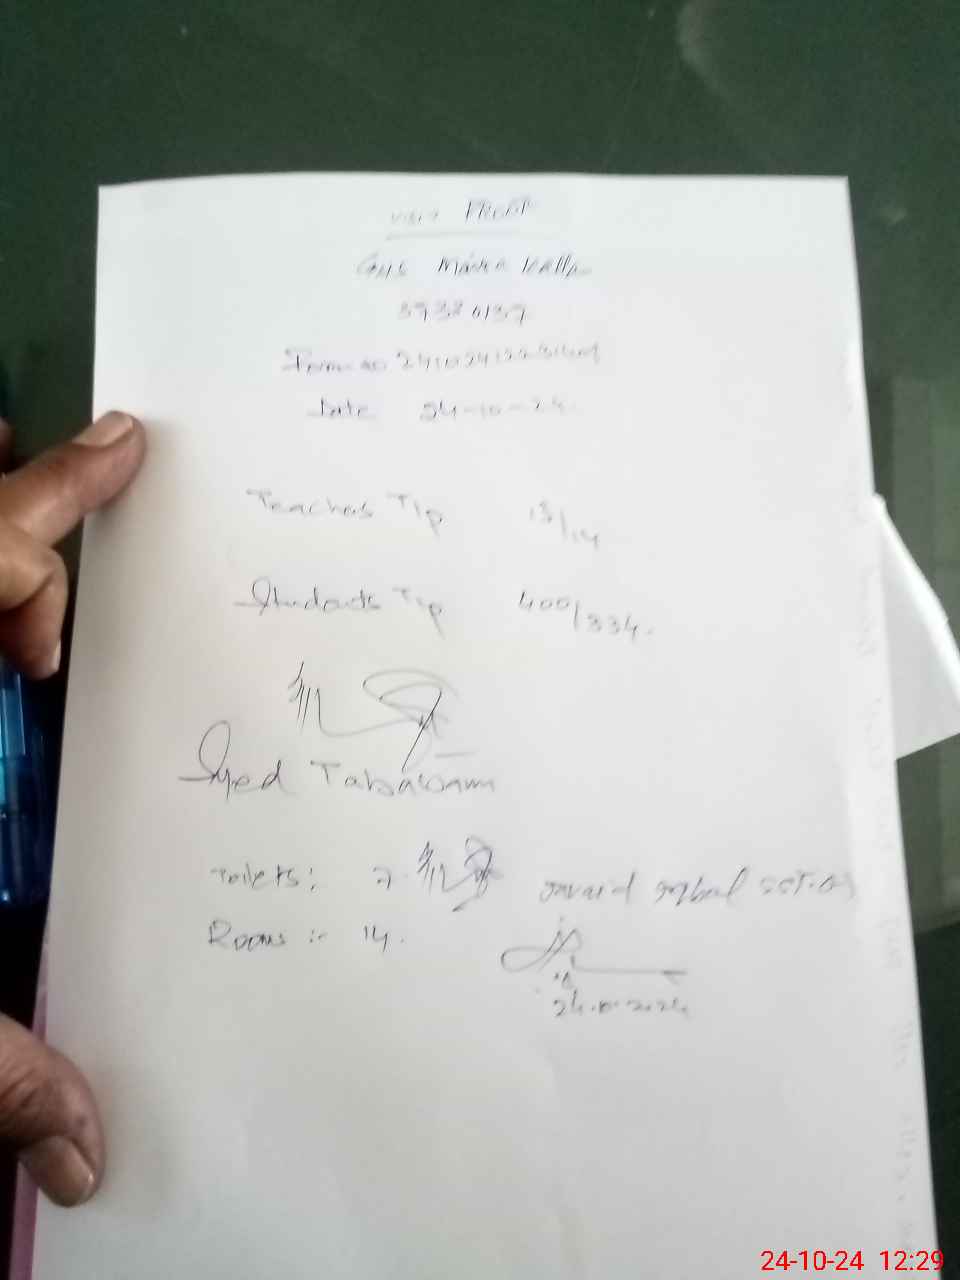 Visit PROOF
GHS
37320137
Form no
Date 24-10-24.
Teachers T/p 13/14
Students T/p 400/334.
Syed Tabassam
Toilets: 7.
Javaid Iqbal SST.
Rooms :- 14.
24.10.2024
24-10-24 12:29